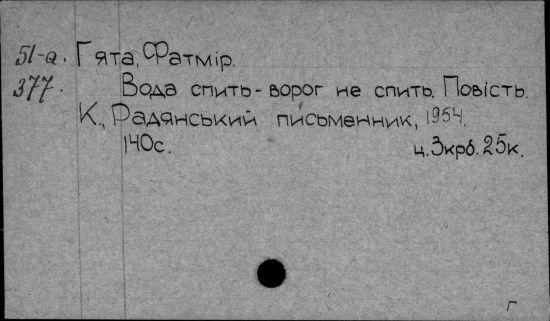 51-а. Гята, Фатмір.
377. Вода спить - ворог не спить. Повість.
К., Радянський письменник, 1954.
140с. ц. 3крб. 25к.
Г